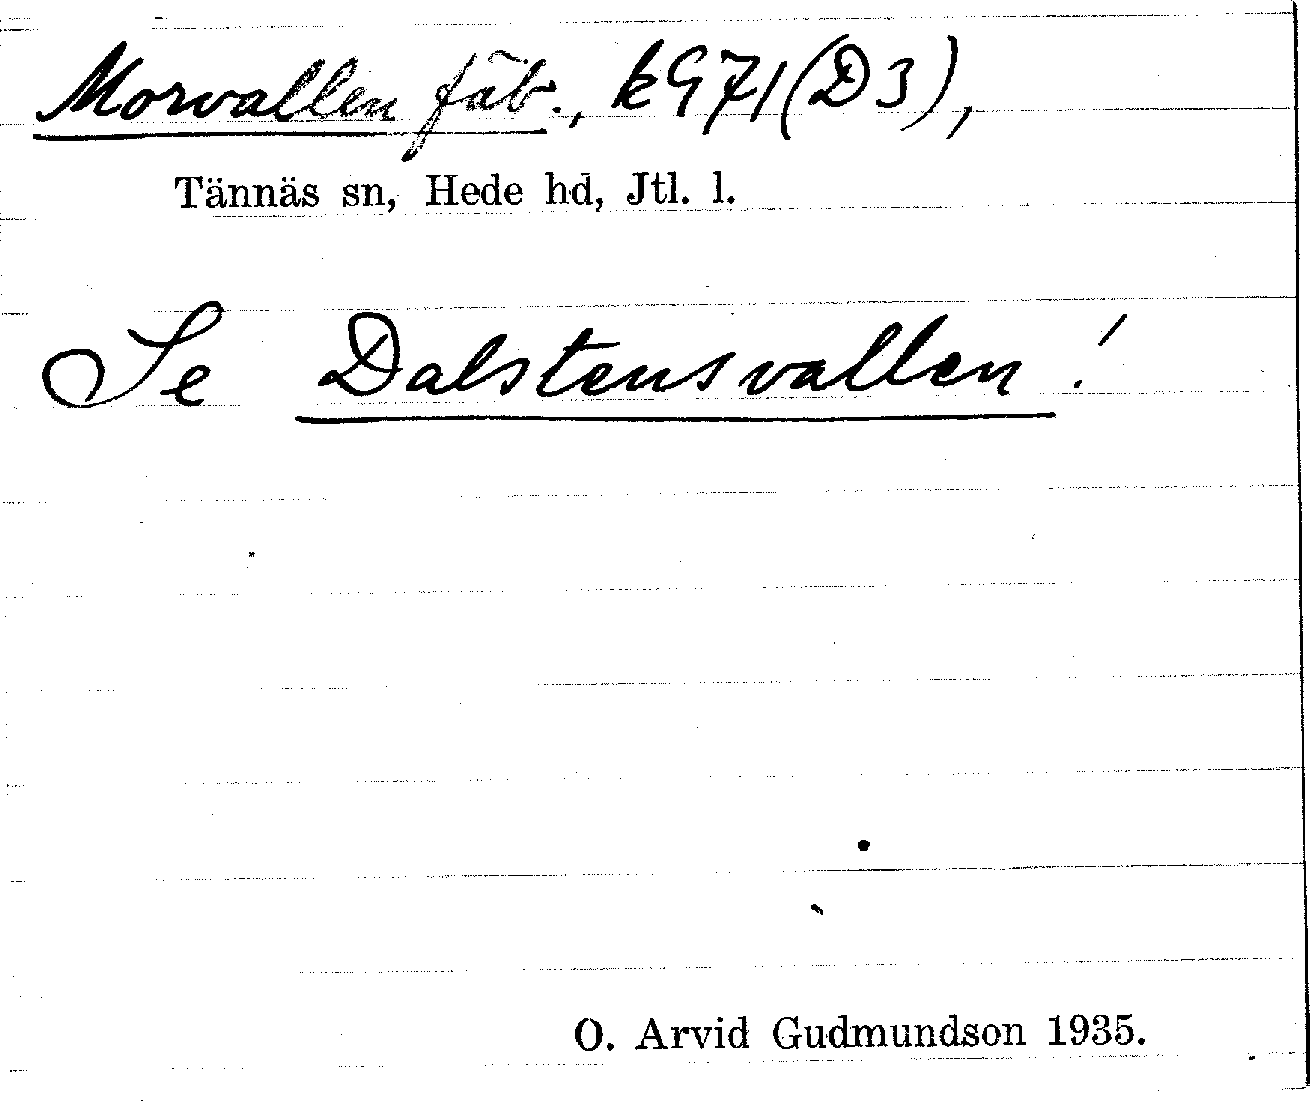 Morvallen fäb., k971(D3),
Tännäs sn, Hede hd, Jtl. l.
Se Dalstensvallen!
O. Arvid Gudmundson 1935.